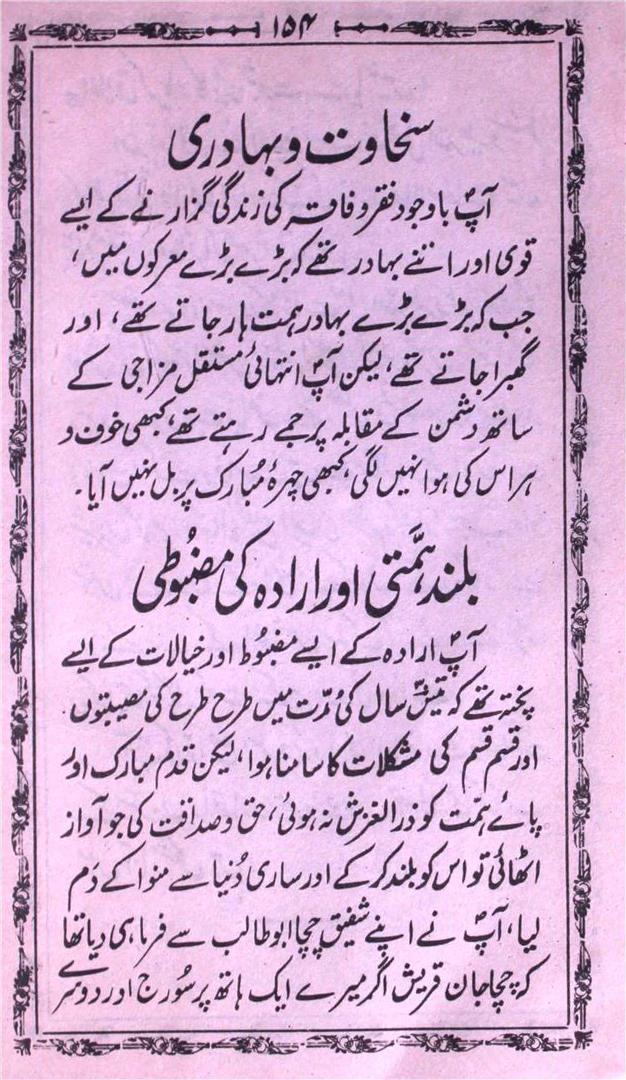 ۱۵۴
سخاوت و بہادری
آپؐ باوجود فقر و فاقہ کی زندگی گزارنے کے ایسے
قوی اور اتنے بہادر تھے کہ بڑے بڑے معرکوں میں،
جب کہ بڑے بڑے بہادر ہمت ہار جاتے تھے، اور
گھبرا جاتے تھے، لیکن آپؐ انتہائی مستقل مزاجی کے
ساتھ دشمن کے مقابلہ پر جمے رہتے تھے، کبھی خوف و
ہراس کی ہوا نہیں لگی، کبھی چہرۂ مُبارک پر بل نہیں آیا۔
بلند ہمَّتی اور ارادہ کی مضبُوطی
آپؐ ارادہ کے ایسے مضبُوط اور خیالات کے ایسے
پختہ تھے کہ تیئیسؔ سال کی مُدّت میں طرح طرح کی مصیبتوں
اور قسم قسم کی مشکلات کا سامنا ہوا، لیکن قدم مبارک اور
پائے ہمّت کو ذرا لغزش نہ ہوئی، حق و صداقت کی جو آواز
اٹھائی تو اس کو بلند کر کے اور ساری دُنیا سے منوا کے دَم
لیا، آپؐ نے اپنے شفیق چچا ابوطالب سے فرما ہی دیا تھا
کہ چچا جان قریش اگر میرے ایک ہاتھ پر سُورج اور دوسرے